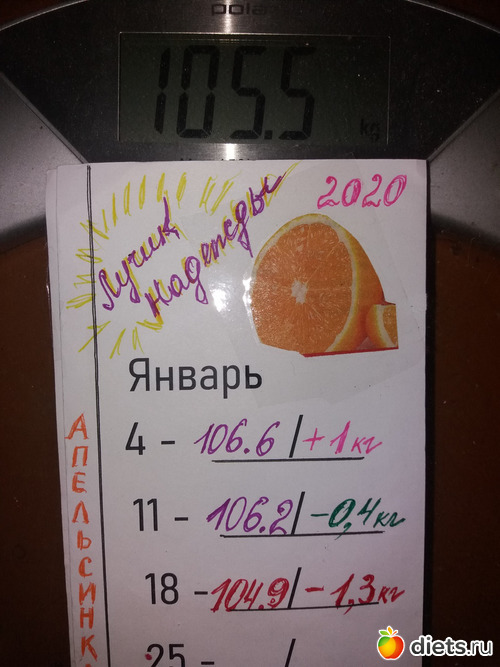 pola
105.5 kg
2020
Лучик
Надежды
Январь
4 - 106.6/+1кг
11 - 106.2/-0,4кг
18 - 104.9/-1,3кг
25 - /
АПЕЛЬСИНК
diets.ru